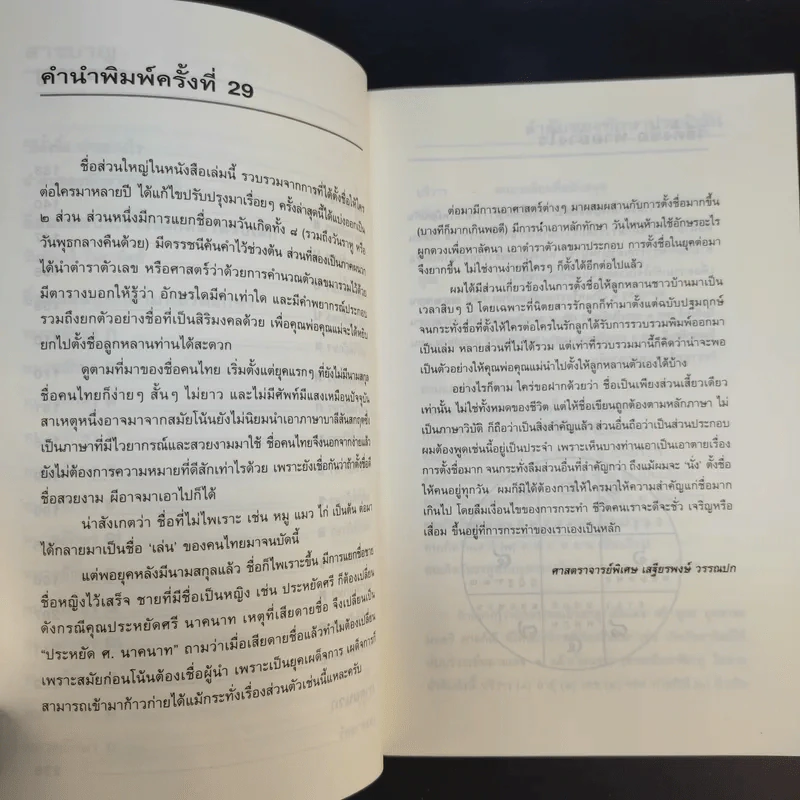 คำนำพิมพ์ครั้งที่ 29
ชื่อส่วนใหญ่ในหนังสือเล่มนี้ รวบรวมจากการที่ได้ตั้งชื่อให้ใคร
ต่อใครมาหลายปี ได้แก้ไขปรับปรุงมาเรื่อยๆ ครั้งล่าสุดนี้ได้แบ่งออกเป็น
๒ ส่วน ส่วนหนึ่งมีการแยกชื่อตามวันเกิดทั้ง ๘ (รวมถึงวันราหู หรือ
วันพุธกลางคืนด้วย) มีดรรชนีค้นคำไว้ช่วงต้น ส่วนที่สองเป็นภาคผนวก
ได้นำตำราตัวเลข หรือศาสตร์ว่าด้วยการคำนวณตัวเลขมารวมไว้ด้วย
มีตารางบอกให้รู้ว่า อักษรใดมีค่าเท่าใด และมีคำพยากรณ์ประกอบ
รวมถึงยกตัวอย่างชื่อที่เป็นสิริมงคลด้วย เพื่อคุณพ่อคุณแม่จะได้หยิบ
ยกไปตั้งชื่อลูกหลานท่านได้สะดวก
ดูตามที่มาของชื่อคนไทย เริ่มตั้งแต่ยุคแรกๆ ที่ยังไม่มีนามสกุล
ชื่อคนไทยก็ง่ายๆ สั้นๆ ไม่ยาว และไม่มีศัพท์มีแสงเหมือนปัจจุบัน
สาเหตุหนึ่งอาจมาจากสมัยโน้นยังไม่นิยมนำเอาภาษาบาลีสันสกฤตซึ่ง
เป็นภาษาที่มีไวยากรณ์และสวยงามมาใช้ ชื่อคนไทยจึงนอกจากง่ายแล้ว
ยังไม่ต้องการความหมายที่ดีสักเท่าไรด้วย เพราะยังเชื่อกันว่าถ้าตั้งชื่อดี
ชื่อสวยงาม ผีอาจมาเอาไปก็ได้
น่าสังเกตว่า ชื่อที่ไม่ไพเราะ เช่น หมู แมว ไก่ เป็นต้น ต่อมา
ได้กลายมาเป็นชื่อ ‘เล่น’ ของคนไทยมาจนบัดนี้
แต่พอยุคหลังมีนามสกุลแล้ว ชื่อก็ไพเราะขึ้น มีการแยกชื่อชาย
ชื่อหญิงไว้เสร็จ ชายที่มีชื่อเป็นหญิง เช่น ประหยัดศรี ก็ต้องเปลี่ยน
ดังกรณีคุณประหยัดศรี นาคนาท เหตุที่เสียดายชื่อ จึงเปลี่ยนเป็น
“ประหยัด ศ. นาคนาท” ถามว่าเมื่อเสียดายชื่อแล้วทำไมต้องเปลี่ยน
เพราะสมัยก่อนโน้นต้องเชื่อผู้นำ เพราะเป็นยุคเผด็จการ เผด็จการก็
สามารถเข้ามาก้าวก่ายได้แม้กระทั่งเรื่องส่วนตัวเช่นนี้แหละครับ
ต่อมามีการเอาศาสตร์ต่างๆ มาผสมผสานกับการตั้งชื่อมากขึ้น
(บางทีก็มากเกินพอดี) มีการนำเอาหลักทักษา วันไหนห้ามใช้อักษรอะไร
ผูกดวงเพื่อหาลัคนา เอาตำราตัวเลขมาประกอบ การตั้งชื่อในยุคต่อมา
จึงยากขึ้น ไม่ใช่งานง่ายที่ใครๆ ก็ตั้งได้อีกต่อไปแล้ว
ผมได้มีส่วนเกี่ยวข้องในการตั้งชื่อให้ลูกหลานชาวบ้านมาเป็น
เวลาสิบๆ ปี โดยเฉพาะที่นิตยสารรักลูกก็ทำมาตั้งแต่ฉบับปฐมฤกษ์
จนกระทั่งชื่อที่ตั้งให้ใครต่อใครในรักลูกได้รับการรวบรวมพิมพ์ออกมา
เป็นเล่ม หลายส่วนที่ไม่ได้รวม แต่เท่าที่รวบรวมมานี้ก็คิดว่าน่าจะพอ
เป็นตัวอย่างให้คุณพ่อคุณแม่นำไปตั้งให้ลูกหลานตัวเองได้บ้าง
อย่างไรก็ตาม ใคร่ขอฝากด้วยว่า ชื่อเป็นเพียงส่วนเสี้ยวเดียว
เท่านั้น ไม่ใช่ทั้งหมดของชีวิต แต่ให้ชื่อเขียนถูกต้องตามหลักภาษา ไม่
เป็นภาษาวิบัติ ก็ถือว่าเป็นสิ่งสำคัญแล้ว ส่วนอื่นถือว่าเป็นส่วนประกอบ
ผมต้องพูดเช่นนี้อยู่เป็นประจำ เพราะเห็นบางท่านเอาเป็นเอาตายเรื่อง
การตั้งชื่อมาก จนกระทั่งลืมส่วนอื่นที่สำคัญกว่า ถึงแม้ผมจะ ‘นั่ง’ ตั้งชื่อ
ให้คนอยู่ทุกวัน ผมก็มิได้ต้องการให้ใครมาให้ความสำคัญแก่ชื่อมาก
เกินไป โดยลืมเงื่อนไขของการกระทำ ชีวิตคนเราจะดีจะชั่ว เจริญหรือ
เสื่อม ขึ้นอยู่ที่การกระทำของเราเองเป็นหลัก
ศาสตราจารย์พิเศษ เสฐียรพงษ์ วรรณปก